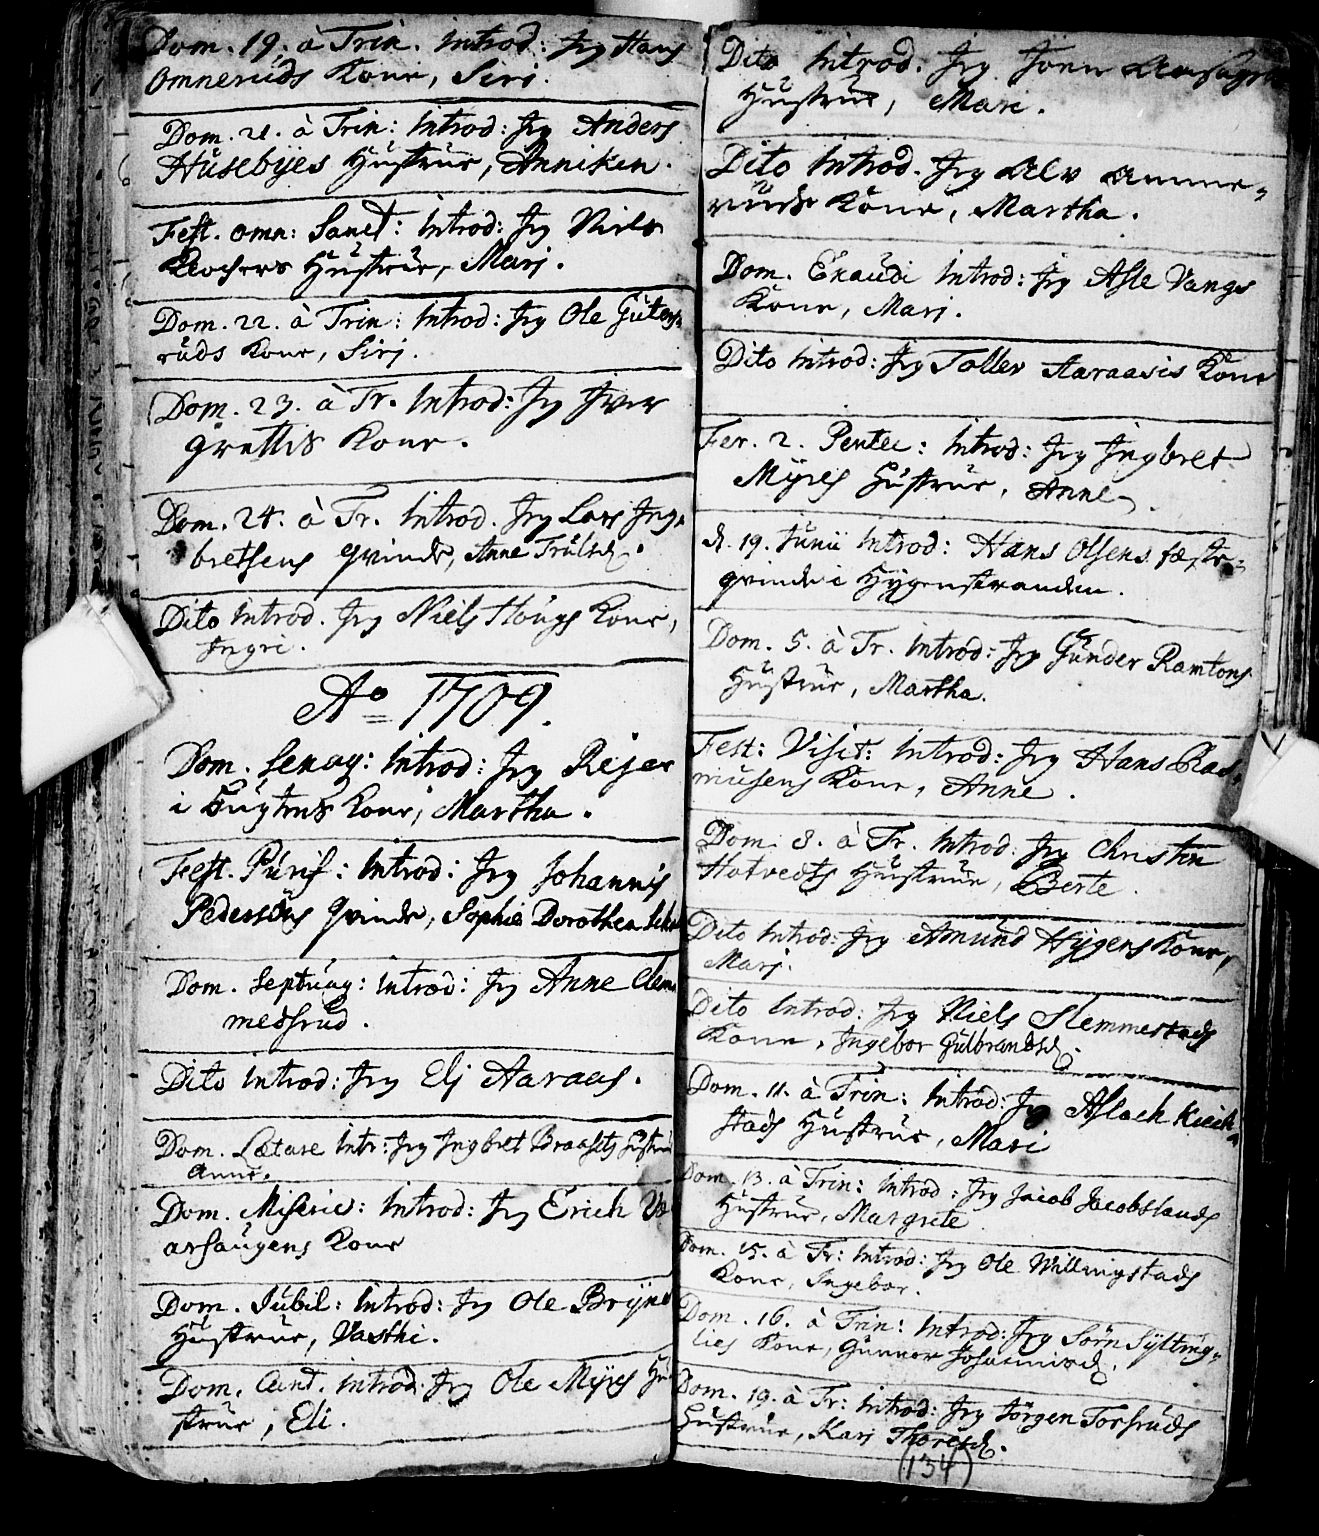 Dom. 19. à Trin. Introd: Jeg Hans
Omneruds Kone, Siri.
Dom. 21. à Trin: Introd: Jeg Anders
Husebyes Hustrue, Anniken.
Fest. Omn: Sanct: Introd: Jeg Niels
Hustrue, Marj.
Dom. 22. à Trin: Introd: Jeg Ole Gutens-
ruds Kone, Sirj.
Dom. 23. à Tr. Introd: Jeg Iver
Grettis Kone.
Dom. 24. à Tr. Introd. Jeg Lars Ing-
bretsens Qvinde, Anne Trulsd.
Dito Introd. Jeg Niels Hougs Kone,
Ingri.
Ao 1709.
Dom. Sexag: Introd: Jeg Rejer
i Kone, Martha.
Fest. Purif: Introd: Jeg Johannis
Pedersöns Qvinde, Sophie Dorothea
Dom. Septuag: Introd: Jeg Anne Clem-
medsrud.
Dito Introd: Jeg Elj Aaraas.
Dom. Lætare Intr: Jeg Ingbret Braasets Hustrue
Anne.
Dom. Miseric: Introd: Jeg Erich
arhaugens Kone
Dom. Jubil: Introd: Jeg Ole Bryns
Hustrue, Vasthi.
Dom. Cant. Introd: Jeg Ole Myres Hu-
strue, Eli.
Dito Introd. Jeg Joen
Hustrue, Mari.
Dito Introd. Jeg Alv Ammer-
ruds Kone, Martha.
Dom. Exaudi Introd: Jeg Asle Vangs
Kone, Marj.
Dito Introd: Jeg Tollev Aaraasis Kone
Fer. 2. Pentec: Introd: Jeg Ingbret
Myres Hustrue, Anne
d. 19. Junii Introd: Hans Olsens fæste-
qvinde i Hygenstranden.
Dom. 5. à Tr. Introd: Jeg Gunder Ramtons
Hustrue, Martha.
Fest: Visit: Introd: Jeg Hans Ras-
musens Kone, Anne.
Dom. 8. à Tr. Introd: Jeg Christen
Hotvedts Hustrue, Berte.
Dito Introd: Jeg Amund Hygens Kone,
Marj.
Dito Introd: Jeg Niels Slemmestads
Kone, Ingebor Gulbrandsd.
Dom. 11. à Trin: Introd: Jeg Aslach Kiech-
stads Hustrue, Mari
Dom. 13. à Trin: Introd: Jeg Jacob Jacobslands
Hustrue, Margrete
Dom. 15. à Tr: Introd: Jeg Ole Willingstads
Kone, Ingebor.
Dom. 16. à Trin: Introd: Jeg Sörn Sylting-
lies Kone, Gunnor
Dom. 19. à Tr: Introd: Jeg Jörgen Torsruds
Hustrue, Kari Thoresd.
(134)